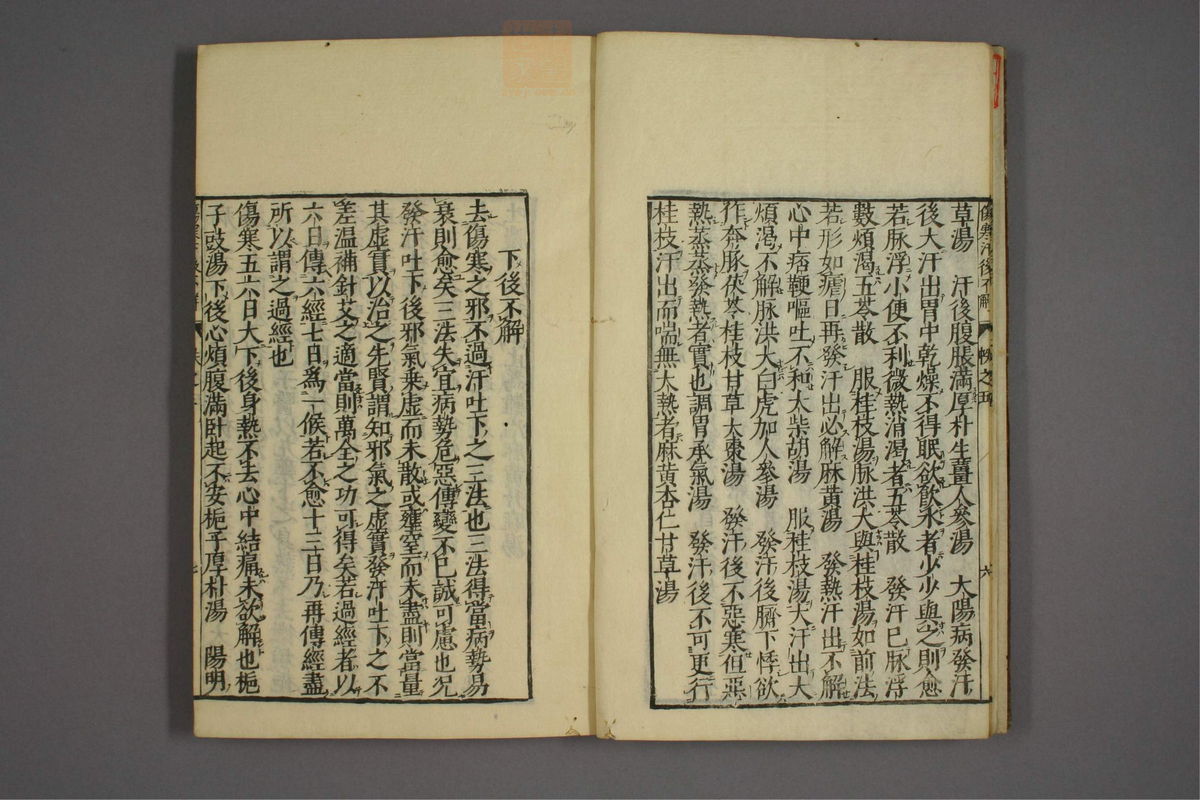 傷寒汗後不解
卷之五
六
草湯　汗後腹脹滿厚朴生薑人參湯　太陽病發汗
後大汗出胃中乾燥不得眠欲飲水者少少與之則愈
若脉浮小便不利微熱消渴者五苓散　發汗已脉浮
數煩渴五苓散　服桂枝湯脉洪大與桂枝湯如前法
若形如瘧日再發汗出必解麻黃湯　發熱汗出不解
心中痞鞕嘔吐不和大柴胡湯　服桂枝湯大汗出大
煩渴不解脉洪大白虎加人參湯　發汗後臍下悸欲
作奔豚茯苓桂枝甘草大棗湯　發汗後不惡寒但惡
熱蒸蒸發熱者實也調胃承氣湯　發汗後不可更行
桂枝汗出而喘無大熱者麻黃杏仁甘草湯
下後不解
去傷寒之邪不過汗吐下之三法也三法得當病勢易
衰則愈矣三法失宜病勢危惡傳變不已誠可慮也况
發汗吐下後邪氣乗虛而未散或壅窒而未盡則當量
其虛實以治之先賢謂知邪氣之虛實發汗吐下之不
差温補針艾之適當則萬全之功可得矣若過經者以
六日傳六經七日為一候若不愈十三日乃再傳經盡
所以謂之過經也
傷寒五六日大下後身熱不去心中結痛未欲解也梔
子豉湯下後心煩腹滿臥起不安梔子厚朴湯　陽明